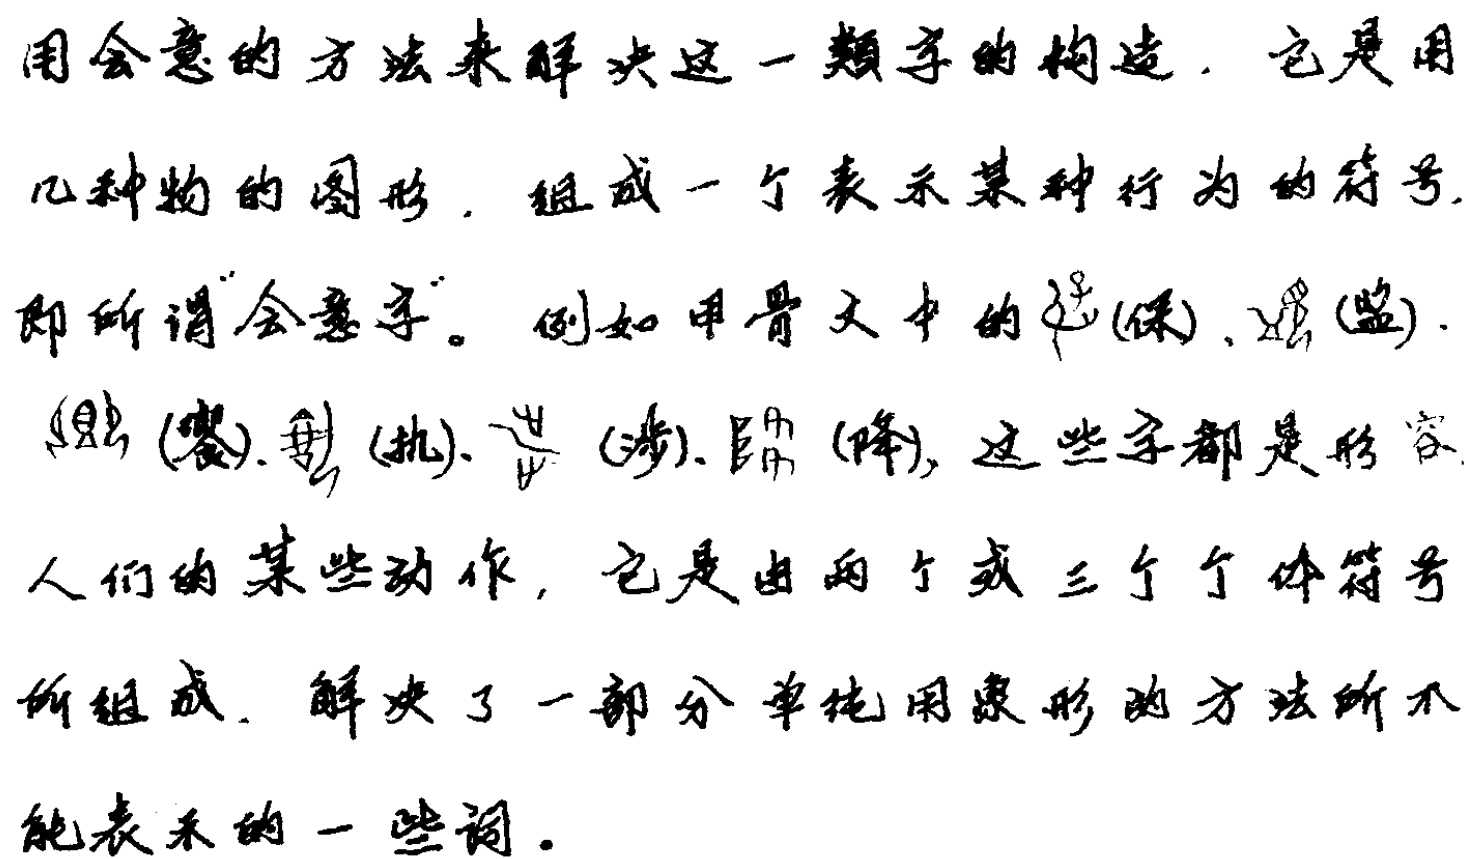 用会意的方法来解决这一類字的构造，它是用
几种物的图形，组成一个表示某种行为的符号，
即所谓"会意字"。例如甲骨文中的(保)、(监)、
(饗)、(执)、(涉)、(降)，这些字都是形容
人们的某些动作，它是由两个或三个个体符号
所组成，解决了一部分单纯用象形的方法所不
能表示的一些词。